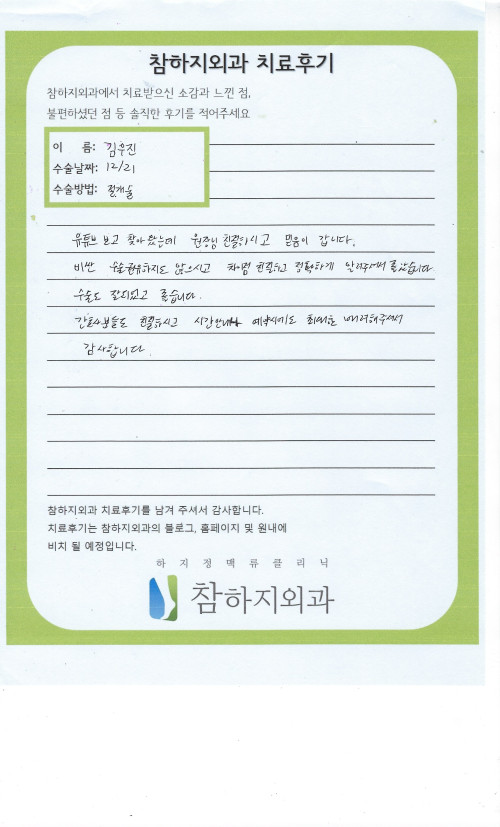 참하지외과 치료후기
참하지외과에서 치료받으신 소감과 느낀 점,
불편하셨던 점 등 솔직한 후기를 적어주세요
이 름: 김우진
수술날짜: 12/21
수술방법: 절개술
유튜브 보고 찾아왔는데 원장님 친절하시고 믿음이 갑니다.
비싼 수술권유하지도 않으시고 친절하고 정확하게 알려주셔서 좋았습니다
수술도 잘되었고 좋습니다.
간호사분들도 친절하시고 시간안내나 예약시에도 최대한 배려해주셔서
감사합니다.
참하지외과 치료후기를 남겨 주셔서 감사합니다.
치료후기는 참하지외과의 블로그, 홈페이지 및 원내에
비치 될 예정입니다.
하지정맥류클리닉
참하지외과